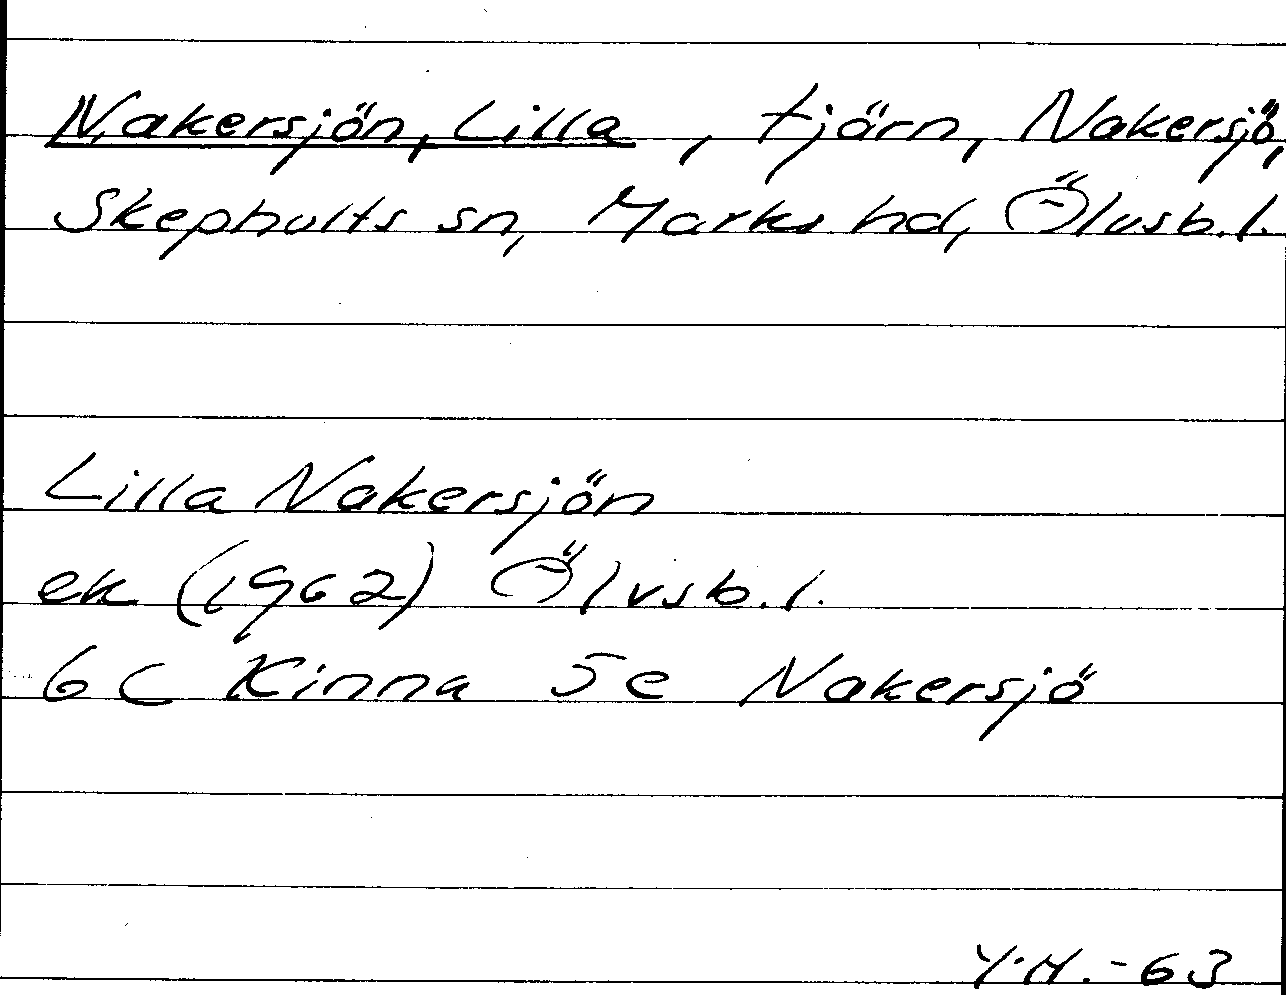 Nakersjön, Lilla, tjärn, Nakersjö,
Skephults sn, Marks hd, Älvsb. l.
Lilla Nakersjön
ek (1962) Älvsb. l.
6 C Kinna 5e Nakersjö
Y.H. -63